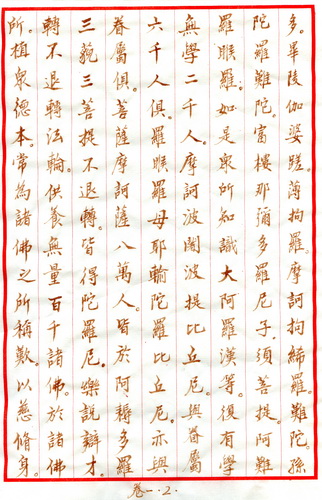 多。畢陵伽婆蹉。薄拘羅。摩訶拘絺羅。難陀。孫
陀羅難陀。富樓那彌多羅尼子。須菩提。阿難
羅睺羅。如是眾所知識大阿羅漢等。復有學
無學二千人。摩訶波闍波提比丘尼。與眷屬
六千人俱。羅睺羅母耶輸陀羅比丘尼。亦與
眷屬俱。菩薩摩訶薩八萬人。皆於阿耨多羅
三藐三菩提不退轉。皆得陀羅尼。樂說辯才。
轉不退轉法輪。供養無量百千諸佛。於諸佛
所。植眾德本。常為諸佛之所稱歎。以慈脩身。
卷一·2·